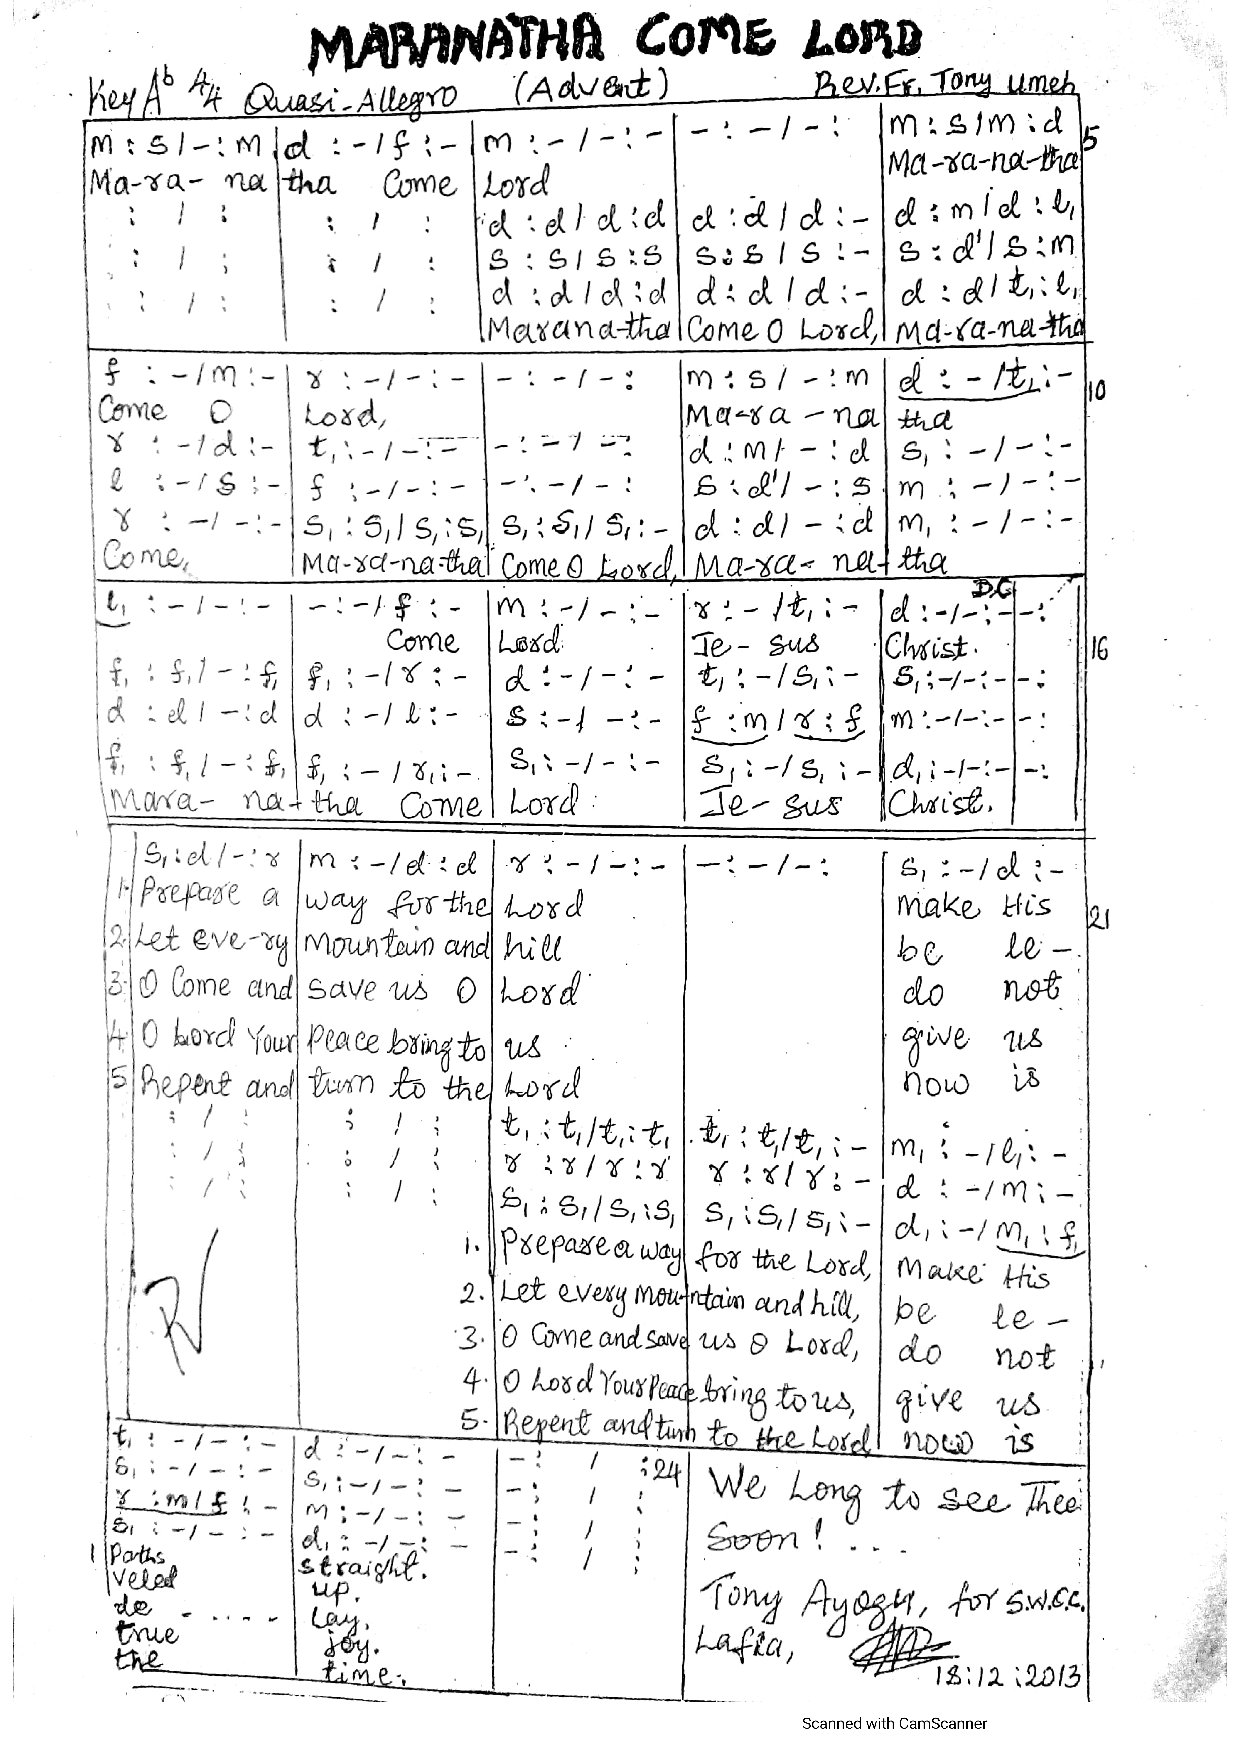 MARANATHA COME LORD
Key A♭ 4/4 Quasi-Allegro (Advent) Rev. Fr. Tony Umeh
m : s / - : m | d : - / f : - | m : - / - : - | - : - / - : | m : s / m : d 5
Ma-ra- na | tha Come | Lord | | Ma-ra-na-tha
: / : | : / : | d : d / d : d | d : d / d : - | d : m / d : l₁
: / : | : / : | s : s / s : s | s : s / s : - | s : d' / s : m
: / : | : / : | d : d / d : d | d : d / d : - | d : d / t₁ : l₁
Marana-tha | Come O Lord, | Ma-ra-na-tha
f : - / m : - | r : - / - : - | - : - / - : | m : s / - : m | d : - / t₁ : - 10
Come O | Lord, | | Ma-ra - na | tha
r : - / d : - | t₁ : - / - : - | - : - / - : | d : m / - : d | s₁ : - / - : -
l : - / s : - | f : - / - : - | - : - / - : | s : d' / - : s | m : - / - : -
r : - / - : - | s₁ : s₁ / s₁ : s₁ | s₁ : s₁ / s₁ : - | d : d / - : d | m₁ : - / - : -
Come, | Ma-ra-na-tha | Come O Lord, | Ma-ra- na- | tha
D.C
l₁ : - / - : - | - : - / f : - | m : - / - : - | r : - / t₁ : - | d : - / - : - | - : 16
Come | Lord | Je - sus | Christ.
f₁ : f₁ / - : f₁ | f₁ : - / r : - | d : - / - : - | t₁ : - / s₁ : - | s₁ : - / - : - | - :
d : d / - : d | d : - / l : - | s : - / - : - | f : m / r : f | m : - / - : - | - :
f₁ : f₁ / - : f₁ | f₁ : - / r₁ : - | s₁ : - / - : - | s₁ : - / s₁ : - | d₁ : - / - : - | - :
Mara- na- | tha Come | Lord | Je - sus | Christ.
s₁ : d / - : r | m : - / d : d | r : - / - : - | - : - / - : | s₁ : - / d : -
1. Prepare a | way for the | Lord | | make His 21
2. Let eve-ry | Mountain and | hill | | be le -
3. O Come and | save us O | Lord | | do not
4. O Lord Your | Peace bring to | us | | give us
5. Repent and | turn to the | Lord | | now is
: / : | : / : | t₁ : t₁ / t₁ : t₁ | t₁ : t₁ / t₁ : - | m₁ : - / l₁ : -
: / : | : / : | r : r / r : r | r : r / r : - | d : - / m : -
: / : | : / : | s₁ : s₁ / s₁ : s₁ | s₁ : s₁ / s₁ : - | d₁ : - / m₁ : f₁
1. Prepare a way | for the Lord, | Make His
2. Let every moun-tain and hill, | be le -
3. O Come and save | us O Lord, | do not
4. O Lord Your Peace bring to us, | give us
5. Repent and turn to the Lord | now is
t₁ : - / - : - | d : - / - : - | - : / : 24
s₁ : - / - : - | s₁ : - / - : - | - : / :
r : m / f : - | m : - / - : - | - : / :
s₁ : - / - : - | d₁ : - / - : - | - : / :
1 Paths | straight.
veled | up.
de - ..... | lay.
true | joy.
the | time.
We Long to see Thee
Soon! ...
Tony Ayogu, for S.W.C.C.
Lafia,
18:12:2013
Scanned with CamScanner